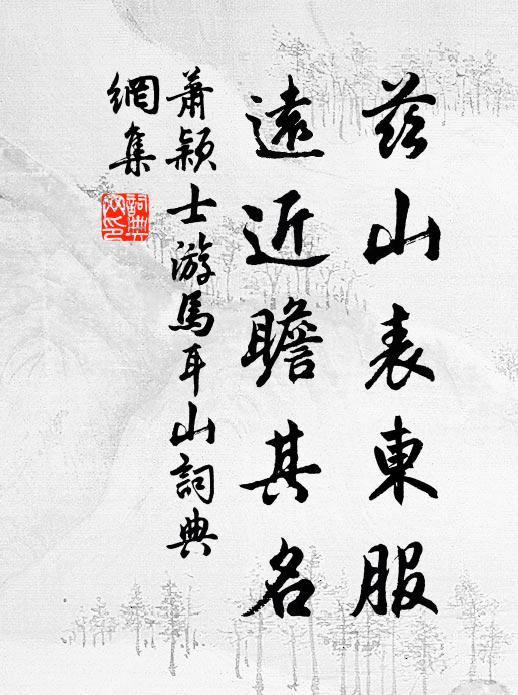 茲山表東服
遠近瞻其名
蕭穎士游馬耳山詞典
網集
詞典
网印